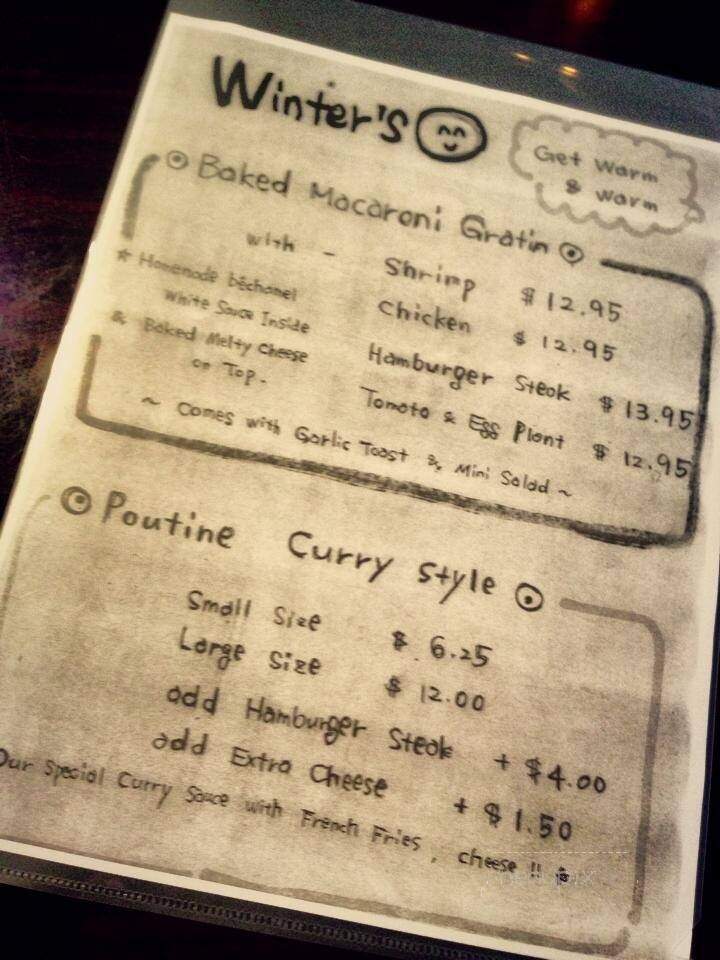 Winter's
Get Warm
& Warm
Baked Macaroni Gratin
with - Shrimp $12.95
Chicken $12.95
Hamburger Steak $13.95
Tomato & Egg Plant $12.95
☆ Homemade béchamel
White Sauce Inside
& Baked Melty Cheese
on Top.
~ Comes with Garlic Toast & Mini Salad ~
Poutine Curry Style
Small Size $6.25
Large Size $12.00
add Hamburger Steak + $4.00
add Extra Cheese + $1.50
Our Special Curry Sauce with French Fries, cheese!!